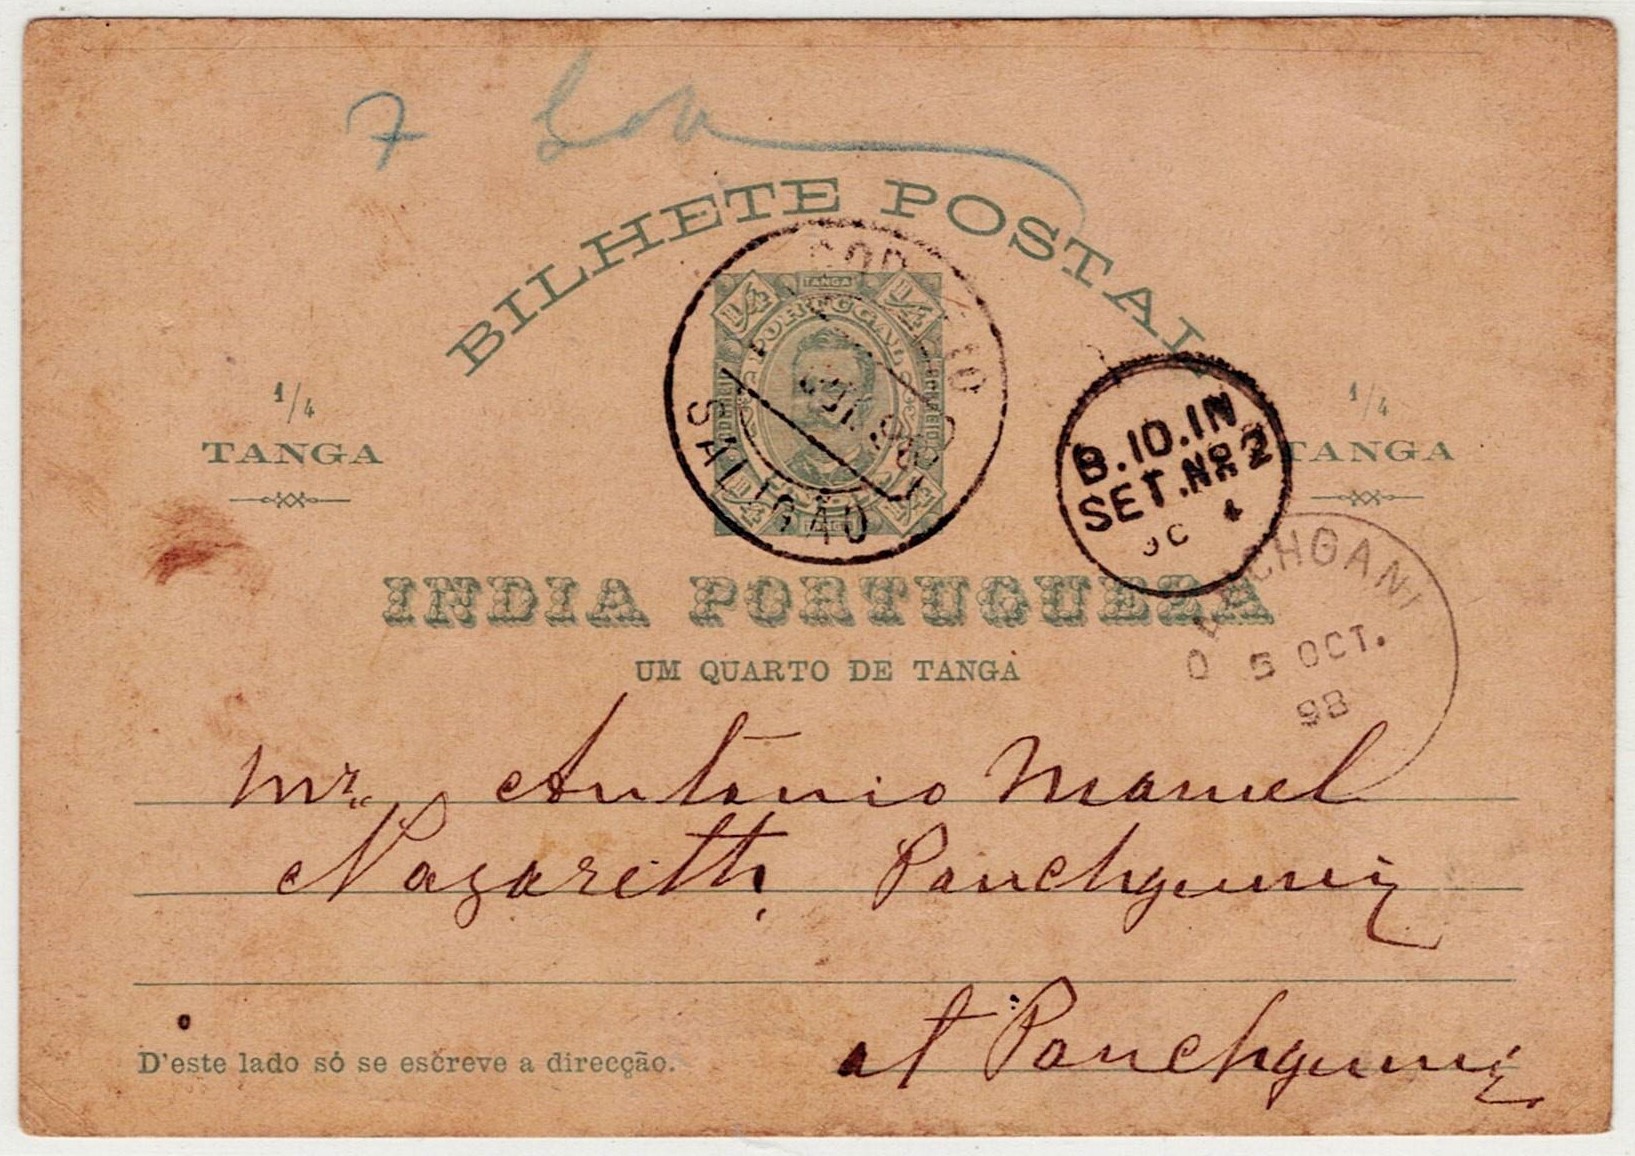 7 Goa
BILHETE POSTAL
1/4 TANGA 1/4
PORTUGAL
CORREIO
1/4 TANGA 1/4
CORREIO
SALIGÃO
1/4
TANGA
1/4
TANGA
B.1D.IN
SET.Nº2
OC 4
PANCHGANI
5 OCT.
98
INDIA PORTUGUEZA
UM QUARTO DE TANGA
Mr. Antonio Manuel
Nazareth, Panchgunii
at Panchgunii
D'este lado só se escreve a direcção.